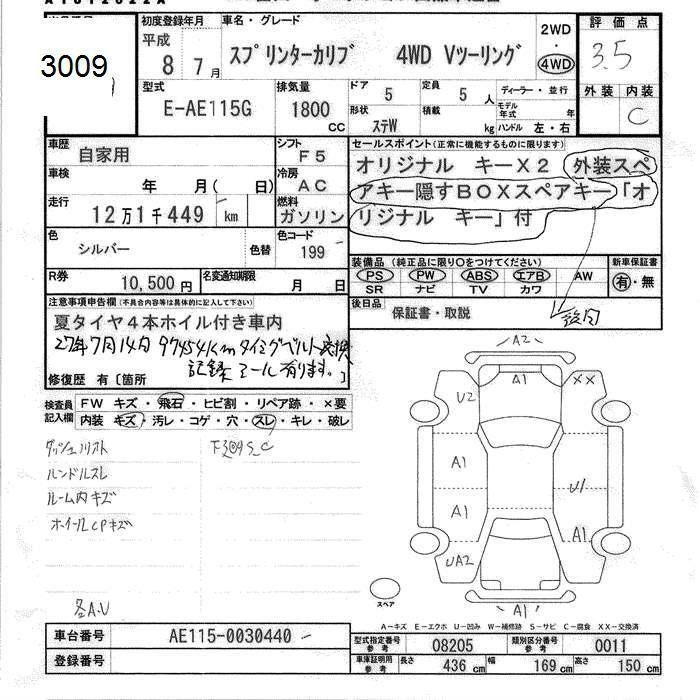 3009
初度登録年月
平成
8 7 月
車名・グレード
スプリンターカリブ 4WD Vツーリング
2WD
・
4WD
評価点
3.5
外装 内装
C
型式
E-AE115G
排気量
1800
CC
ドア
5
定員
5 人
形状
ステW
積載
kg
ディーラー・並行
モデル年式 年
ハンドル 左・右
車歴
自家用
シフト
F5
車検
年 月( 日)
冷房
AC
走行
12万1千449 km
燃料
ガソリン
色
シルバー
色替
色コード
199
R券
10,500 円
名変通知期限
月 日
セールスポイント(正常に機能するものに限ります)
オリジナル キーX2 外装スペ
アキー隠すBOXスペアキー「オ
リジナル キー」付
装備品 (純正品に限り○をつけてください)
PS PW ABS エアB AW
SR ナビ TV カワ
新車保証書
有・無
後日品
保証書・取説
後日
注意事項申告欄(不具合内容等は具体的に記入して下さい)
夏タイヤ4本ホイル付き車内
27年7月14日 97454km タイミングベルト交換
記録 シール 有ります。
修復歴 有〔箇所 〕
検査員記入欄
FW キズ・飛石・ヒビ割・リペア跡・×要
内装 キズ・汚レ・コゲ・穴・スレ・キレ・破レ
ハンドルスレ
ルーム内キズ
ホイールCPキズ
各A.U
A2
A1
U2
XX
A1
A1
U1
A1
UA2
A1
スペア
A-キズ E-エクボ U-凹み W-補修跡 S-サビ C-腐食 XX-交換済
車台番号
AE115-0030440
登録番号
型式指定番号 参考
08205
類別区分番号 参考
0011
車庫証明用 参考
長さ 436 cm
幅 169 cm
高さ 150 cm